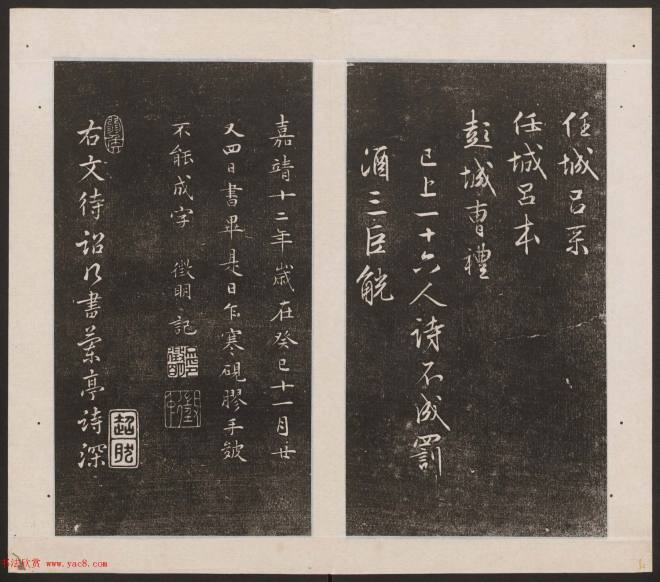 任城吕系
任城吕本
彭城曹禮
已上一十六人詩不成罰
酒三巨觥
嘉靖十二年歲在癸巳十一月廿
又四日書畢是日乍寒硯膠手皴
不能成字 徵明記
右文待詔行書蘭亭詩深
书法欣赏 www.yac8.com